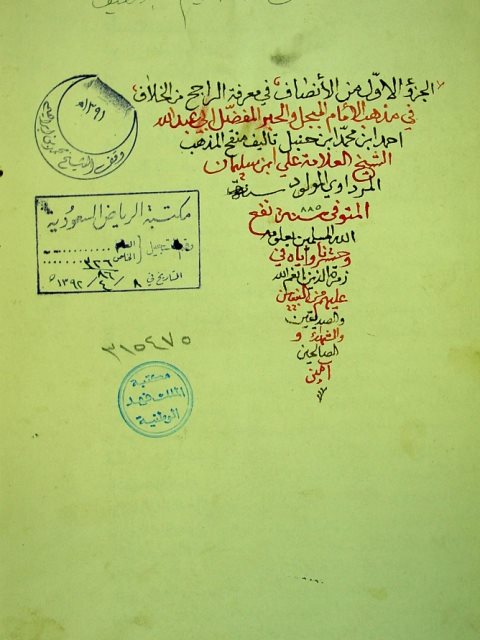 الجزؤ الاوّل من الأنصاف في معرفة الراجح من الخلاف
في مذهب الأمام المبجل والحبر المفضّل ابي عبد الله
احمد ابن محمّد ابن حنبل تاليف منقح المذهب
الشيخ العلامة علي ابن سليمان
المرداوي المولود سنة
المتوفى سنة ٨٨٥ نفع
الله المسلمين بعلومه
وحشرنا واياه في
زمرة الذين انعم الله
عليهم من النبيين
والصديقين
والشهداء و
الصالحين
آمين
١٣٩١هـ
وقف الشيخ محمد
مكتبة الرياض السعودية
رقم التسجيل العام
الخاص ٨٦
التاريخ في ٨ / ٤ / ١٣٩٢
٣١٥٤٧٥
مكتبة
الملك فهد
الوطنية